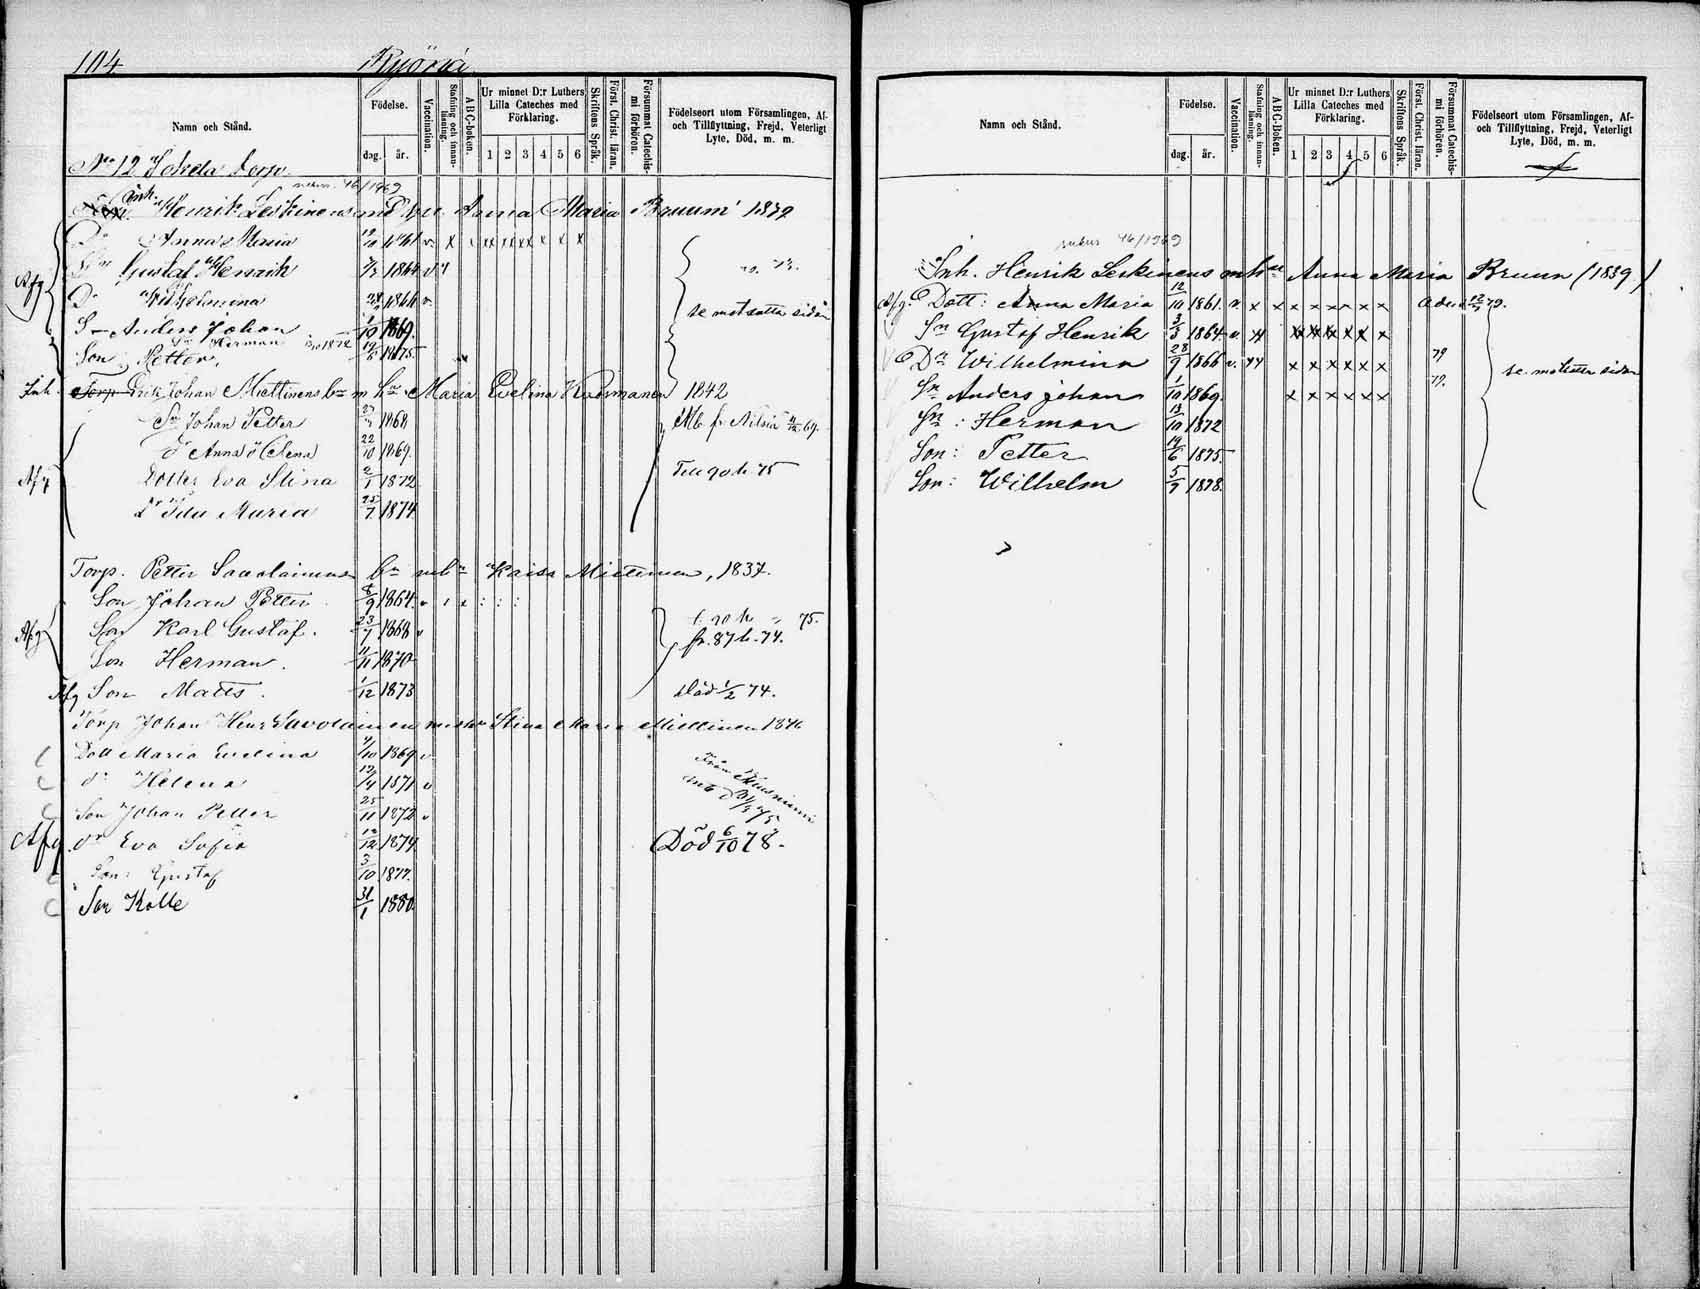 104 Ryönä
Namn och Stånd.
Födelse.
dag. år.
Vaccination.
Stafning och innanläsning.
ABC-Boken.
Ur minnet D:r Luthers Lilla Cateches med Förklaring.
1 2 3 4 5 6
Skriftens Språk.
Först. Christ. läran.
Försummat Catechismi förhören.
Födelseort utom Församlingen, Af- och Tillflyttning, Frejd, Veterligt Lyte, Död, m. m.
No 12
46/1969
Inh. Henrik Leskinens Anna Maria Bruun 1839
Dr Anna Maria 12/10 1861 v x x x x x x x
Afg Sn Gustaf Henrik 3/3 1864 v
Dr Wilhelmina 28/9 1866 v.
se motsatta sidan
Sn Anders Johan 1/10 1869.
Sn Herman 13/10 1872
Son Petter. 19/6 1875
Inh. Torp Erik Johan Miettinens bn m hu Maria Evelina Kuosmanen 1842
Sn Johan Petter 1868 Mb fr Nilsiä 69.
dr Anna Helena 22/10 1869.
Afg Dotter Eva Stina 2/1 1872 Till 90 h 75
Dr Ida Maria 25/7 1874
Torp. Petter Savolainens bn m hu Kaisa Miettinen, 1837.
Son Johan Petter 8/9 1864 v
Afg Son Karl Gustaf. 23/7 1868 v t. 90 h 75.
fr. 87 h. 74.
Son Herman. 11/11 1870
Afg Son Matts. 1/12 1873 död 1/2 74.
Torp Johan Henr Savolainen Stina Maria Miettinen
Dott Maria Evelina 1869 v
dr Helena 1871 v
Från
Son Johan Petter 25/11 1872 v
Afg dr Eva Sofia 12/12 1874 Död 6/10 78.
Son: Gustaf 3/10 1877.
Son Kalle 31/1 1880.
Namn och Stånd.
Födelse.
dag. år.
Vaccination.
Stafning och innanläsning.
ABC-Boken.
Ur minnet D:r Luthers Lilla Cateches med Förklaring.
1 2 3 4 5 6
Skriftens Språk.
Först. Christ. läran.
Försummat Catechismi förhören.
Födelseort utom Församlingen, Af- och Tillflyttning, Frejd, Veterligt Lyte, Död, m. m.
46/1969
Inh. Henrik Leskinens m hu Anna Maria Bruun (1839)
Afg. Dott: Anna Maria 12/10 1861. v. x x x x x x x x 79.
Sn Gustaf Henrik 3/3 1864. v. x x x x x x x
Dr Wilhelmina 28/9 1866 v. x x x x x x 79
se motsatta sidan
Sn Anders Johan 1/10 1869. x x x x x x 79.
Sn: Herman 13/10 1872
Son: Petter 19/6 1875.
Son: Wilhelm 5/7 1878.